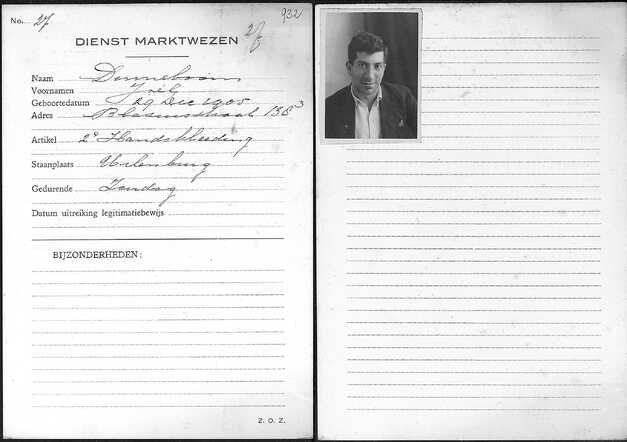 No. 27 932
DIENST MARKTWEZEN 27
Naam Denneboom
Voornamen Joël
Geboortedatum 29 Dec 1905
Adres Blasiusstraat 138³
Artikel 2e Handskleeding
Staanplaats Uilenburg
Gedurende Zondag
Datum uitreiking legitimatiebewijs
BIJZONDERHEDEN:
Z. O. Z.